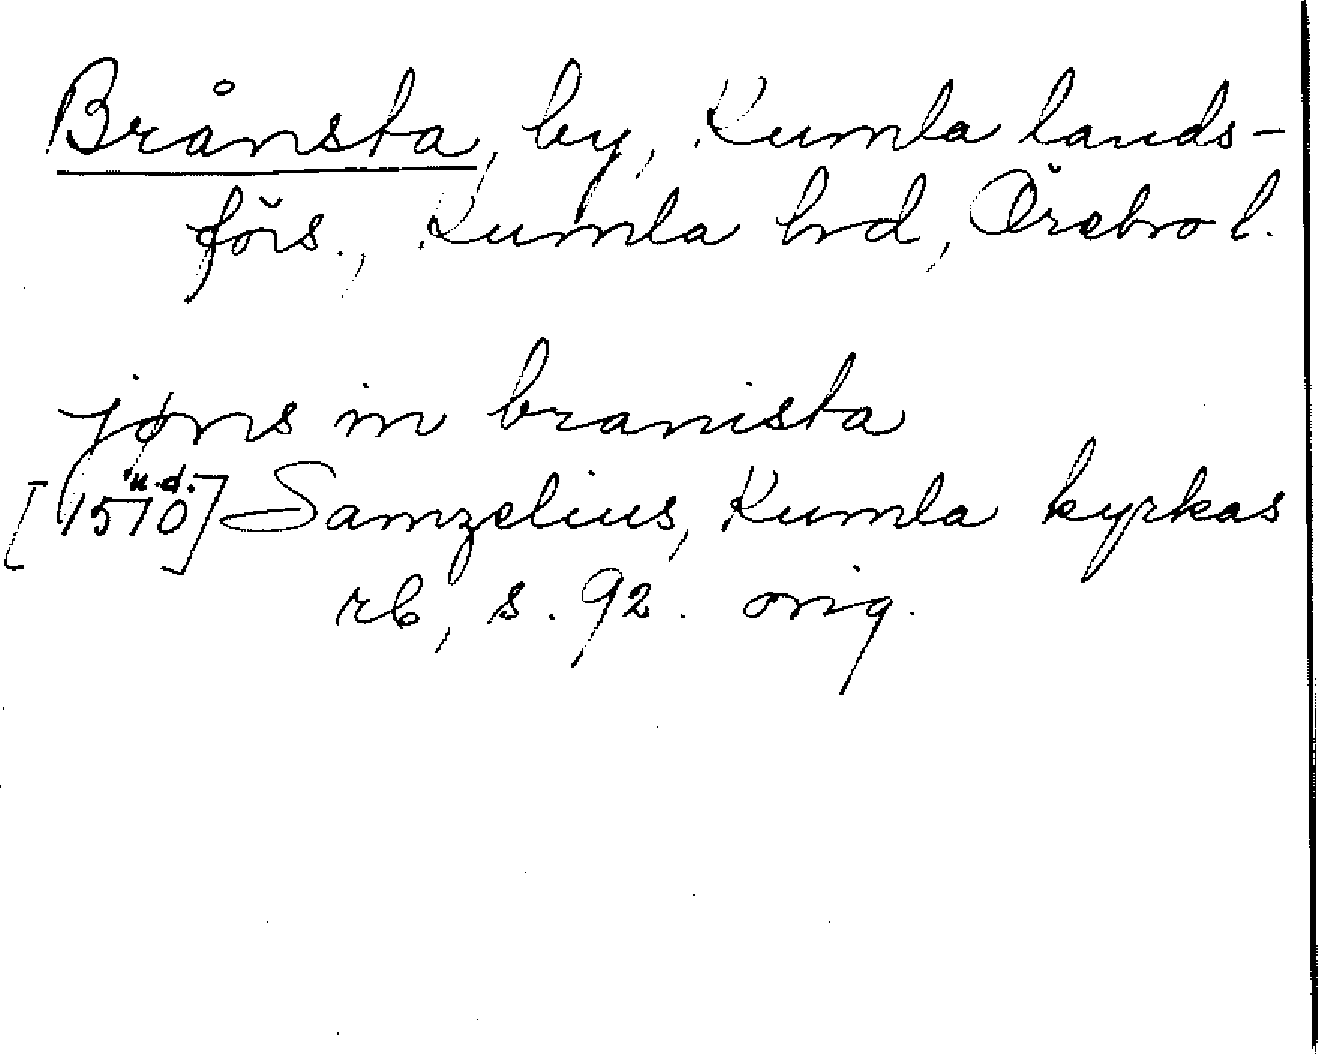 Brånsta, by, Kumla lands-
förs., Kumla hd, Örebro l.
jøns in branista
[1510 u.d.] Samzelius, Kumla kyrkas
rb, s. 92. orig.